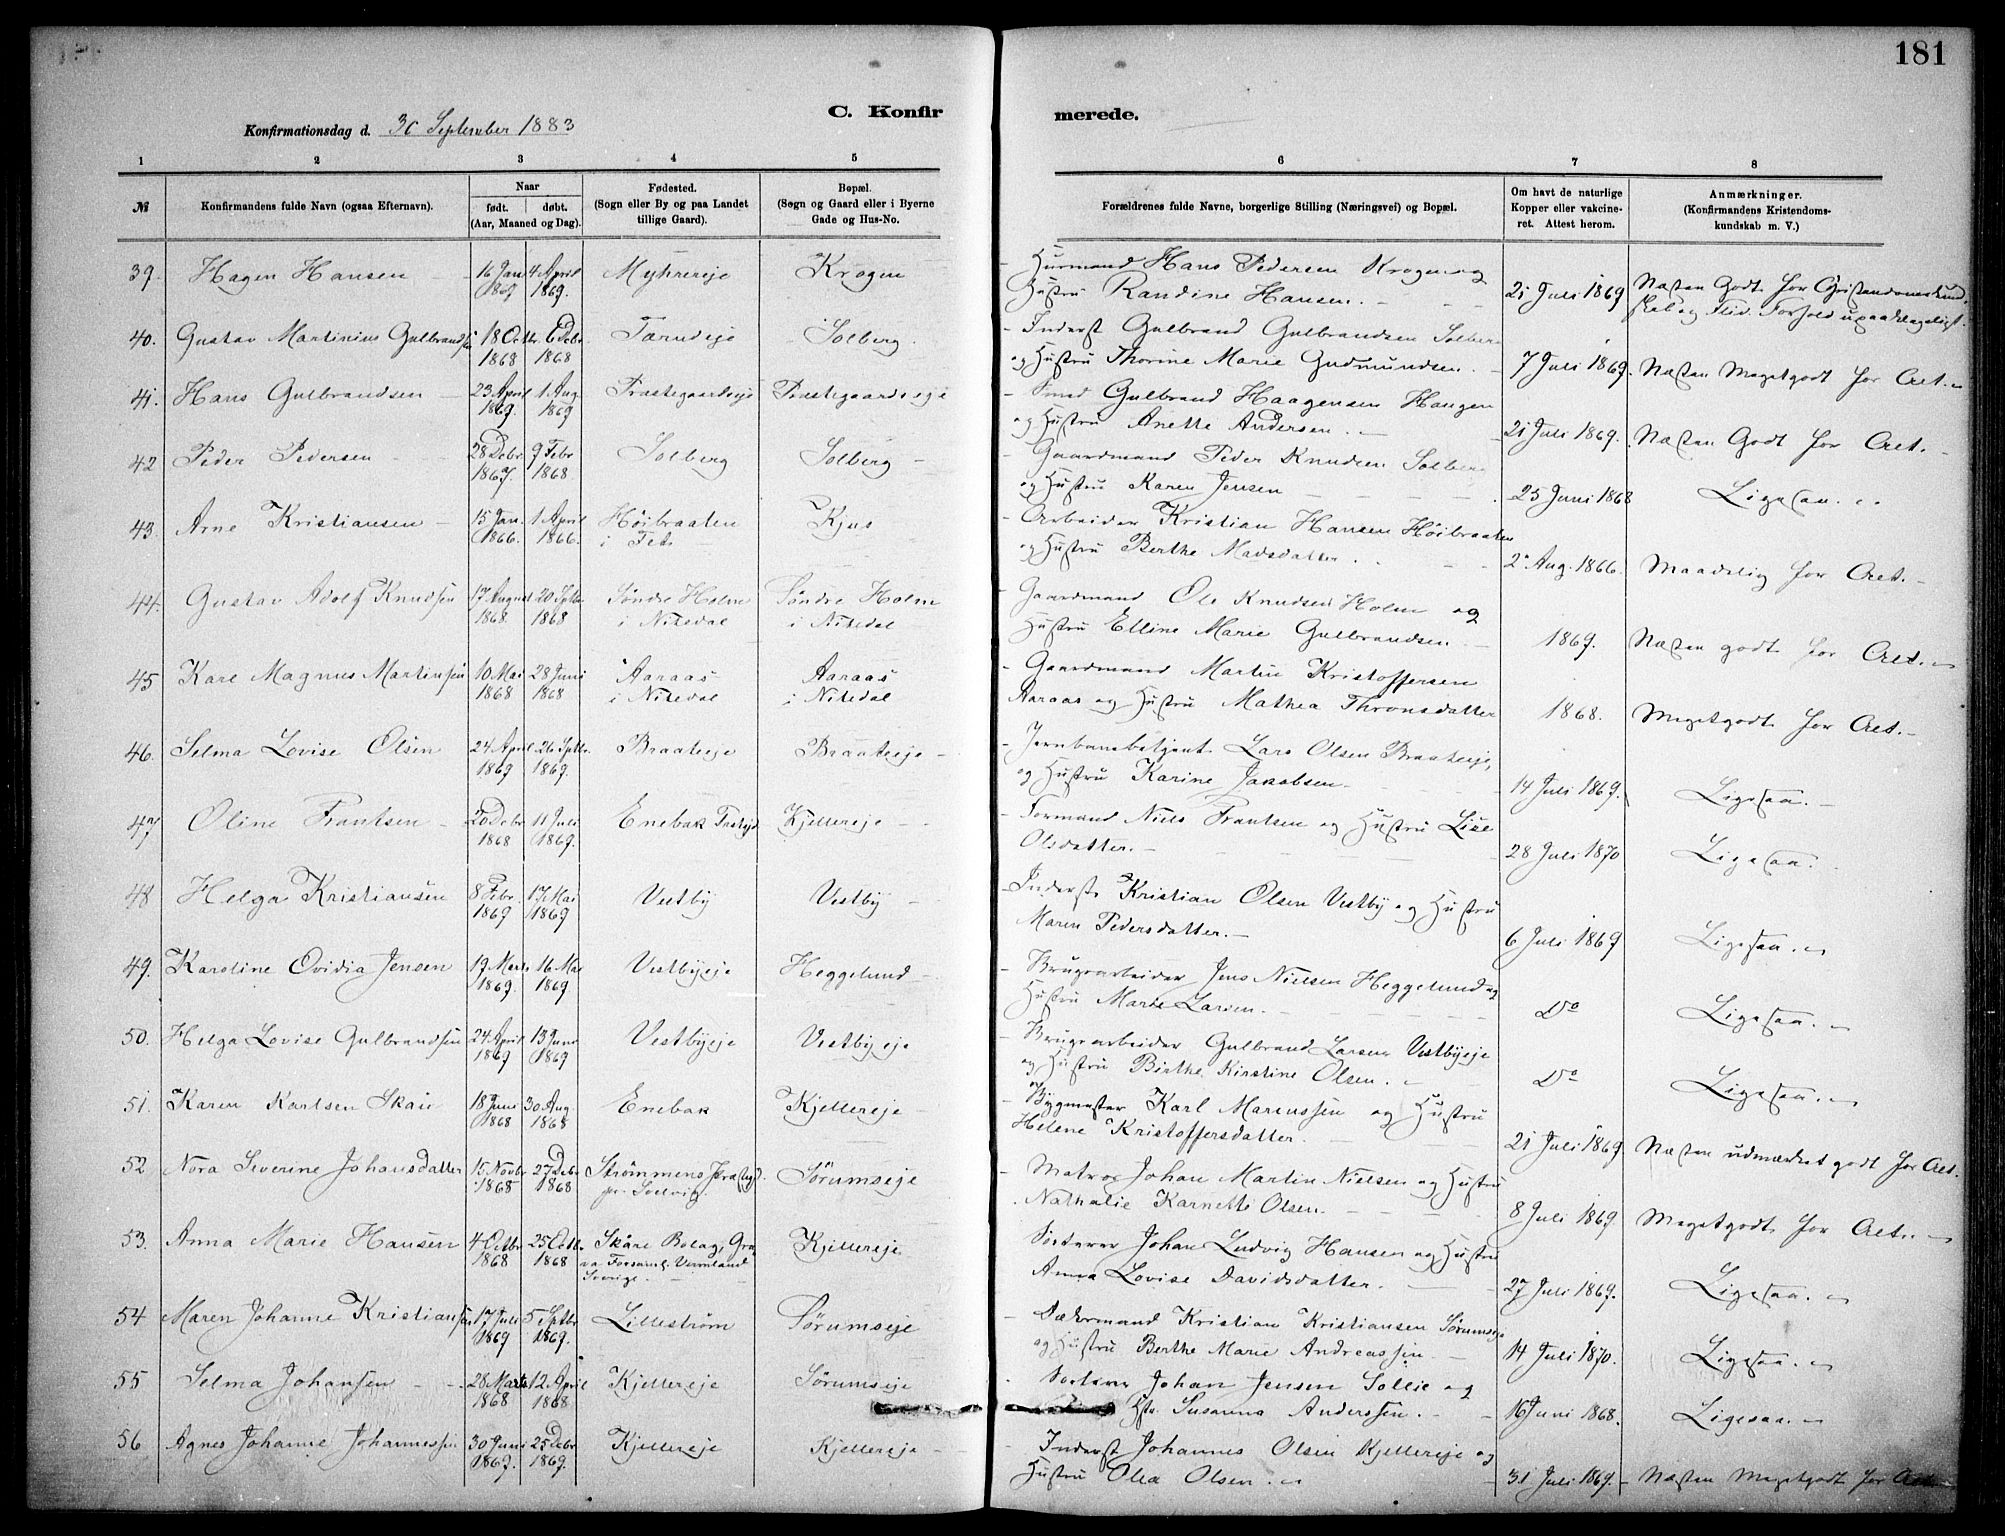 181
C. Konfir
merede.
Konfirmationsdag d. 30 September 1883
1 2 3 4 5 6 7 8
№ Konfirmandens fulde Navn (ogsaa Efternavn). Naar født. døbt. (Aar, Maaned og Dag). Fødested. (Sogn eller By og paa Landet tillige Gaard). Bopæl. (Sogn og Gaard eller i Byerne Gade og Hus-No. Forældrenes fulde Navne, borgerlige Stilling (Næringsvei) og Bopæl. Om havt de naturlige Kopper eller vakcineret. Attest herom. Anmærkninger. (Konfirmandens Kristendomskundskab m. V.)
39. Hagen Hansen 16 Jan 1869 4 April 1869. Myhrereje Krogen
Husmand Hans Pedersen Krogen og
Hustru Randine Hansen. 21 Juli 1869 Næsten Godt for Cristendomskund
skab og Flid. Forhold upaaklageligt.
40. Gustav Martinius Gulbrandsen 18 Octbr. 1868 6 Debr. 1868 Tærudeje Solberg.
Inderst Gulbrand Gulbrandsen Solberg
og Hustru Thorine Marie Gudmundsen. 7 Juli 1869. Næsten Megetgodt for Cret.
41. Hans Gulbrandsen 23 April 1869. 1 Aug 1869 Præstegaardseje Præstegaardseje
Smed Gulbrand Haagensen Haugen
og Hustru Anette Andersen. 21 Juli 1869. Næsten Godt for Cret.
42 Peder Pedersen 28 Debr 1867. 9 Febr 1868 Solberg Solberg
Gaardmand Peder Knudsen Solberg
og Hustru Karen Jensen 25 Juni 1868 Ligesaa.
43. Arne Kristiansen 15 Jan. 1866. 1 April 1866. Høibraaten i Feds Kjus
Arbeider Kristian Hansen Høibraaten
og Hustru Berthe Madsdatter. 2 Aug. 1866. Maadelig for Cret.
44. Gustav Adolf Knudsen 17 August 1868 20 Sptbr 1868 Søndre Holm i Nitedal Søndre Holm i Nitedal
Gaardmand Ole Knudsen Holm og
Hustru Elline Marie Gulbrandsen. 1869. Næsten godt for Cret.
45 Karl Magnus Martinsen 10 Mai 1868 28 Juni 1868 Aaraas i Nitedal Aaraas i Nitedal
Gaardmand Martin Kristoffersen
Aaraas og Hustru Mathea Thronsdatter 1868. Megetgodt for Cret.
46. Selma Lovise Olsen 24 April 1869 26 Sptbr. 1869. Braateeje Braateeje
Jernbanebetjent Lars Olsen Braateeje,
og Hustru Karine Jakobsen. 14 Juli 1869. Ligesaa.
47 Oline Frantsen 20 Debr 1868 11 Juli 1869. Enebak Kjellereje
Formand Niels Frantsen og Hustru Lise
Olsdatter. 28 Juli 1870 Ligesaa.
48 Helga Kristiansen 8 Febr. 1869 17 Mai 1869 Vestby Vestby
Inderst Kristian Olsen Vestby og Hustru
Maren Pedersdatter. 6 Juli 1869 Ligesaa.
49. Karoline Ovidia Jensen 19 Marts 1869. 16 Mai 1869. Vestbyeje Heggelund
Brugsarbeider Jens Nielsen Heggelund og
Hustru Marte Larsen. Do Ligesaa.
50. Helga Lovise Gulbrandsen 24 April 1869 13 Juni 1869 Vestbyeje Vestbyeje
Brugsarbeider Gulbrand Larsen Vestbyeje
og Hustru Birthe Kirstine Olsen. Do Ligesaa.
51. Karen Karlsen Skau 18 Juni 1868 30 Aug. 1868 Enebak Kjellereje
Bygmester Karl Marcussen og Hustru
Helene Kristoffersdatter. 21 Juli 1869 Næsten udmærket godt for Cret.
52 Nora Severine Johansdatter 15 Novbr. 1868 27 Debr 1868 Strømmens Sørumseje
Matros Johan Martin Nielsen og Hustru
Nathalie Karnette Olsen. 8 Juli 1869 Megetgodt for Cret.
53. Anna Marie Hansen 4 Octbr 1868 25 Octbr. 1868 Skåre Bolag, Gra va Forsaml. Vermland Sverige. Kjellereje
Sorterer Johan Ludvig Hansen og Hustru
Anna Lovise Davidsdatter. 27 Juli 1869. Ligesaa.
54 Maren Johanne Kristiansen 17 Juli 1869 5 Sptbr 1869. Lillestrøm Sørumseje
Kristian Kristiansen Sørumseje
og Hustru Berthe Marie Andreassen 14 Juli 1870. Ligesaa.
55 Selma Johansen 28 Marts 1868 12 April 1868 Kjellereje Sørumseje
Sorterer Johan Jensen Sollie og
Hstr. Susanna Anderssen. 16 Juni 1868. Ligesaa.
56 Agnes Johanne Johannessen 30 Juni 1869. 25 Debr 1869. Kjellereje Kjellereje
Inderst Johannes Olsen Kjellereje og
Hustru Olea Olsen. 31 Juli 1869. Næsten Megetgodt for Cret